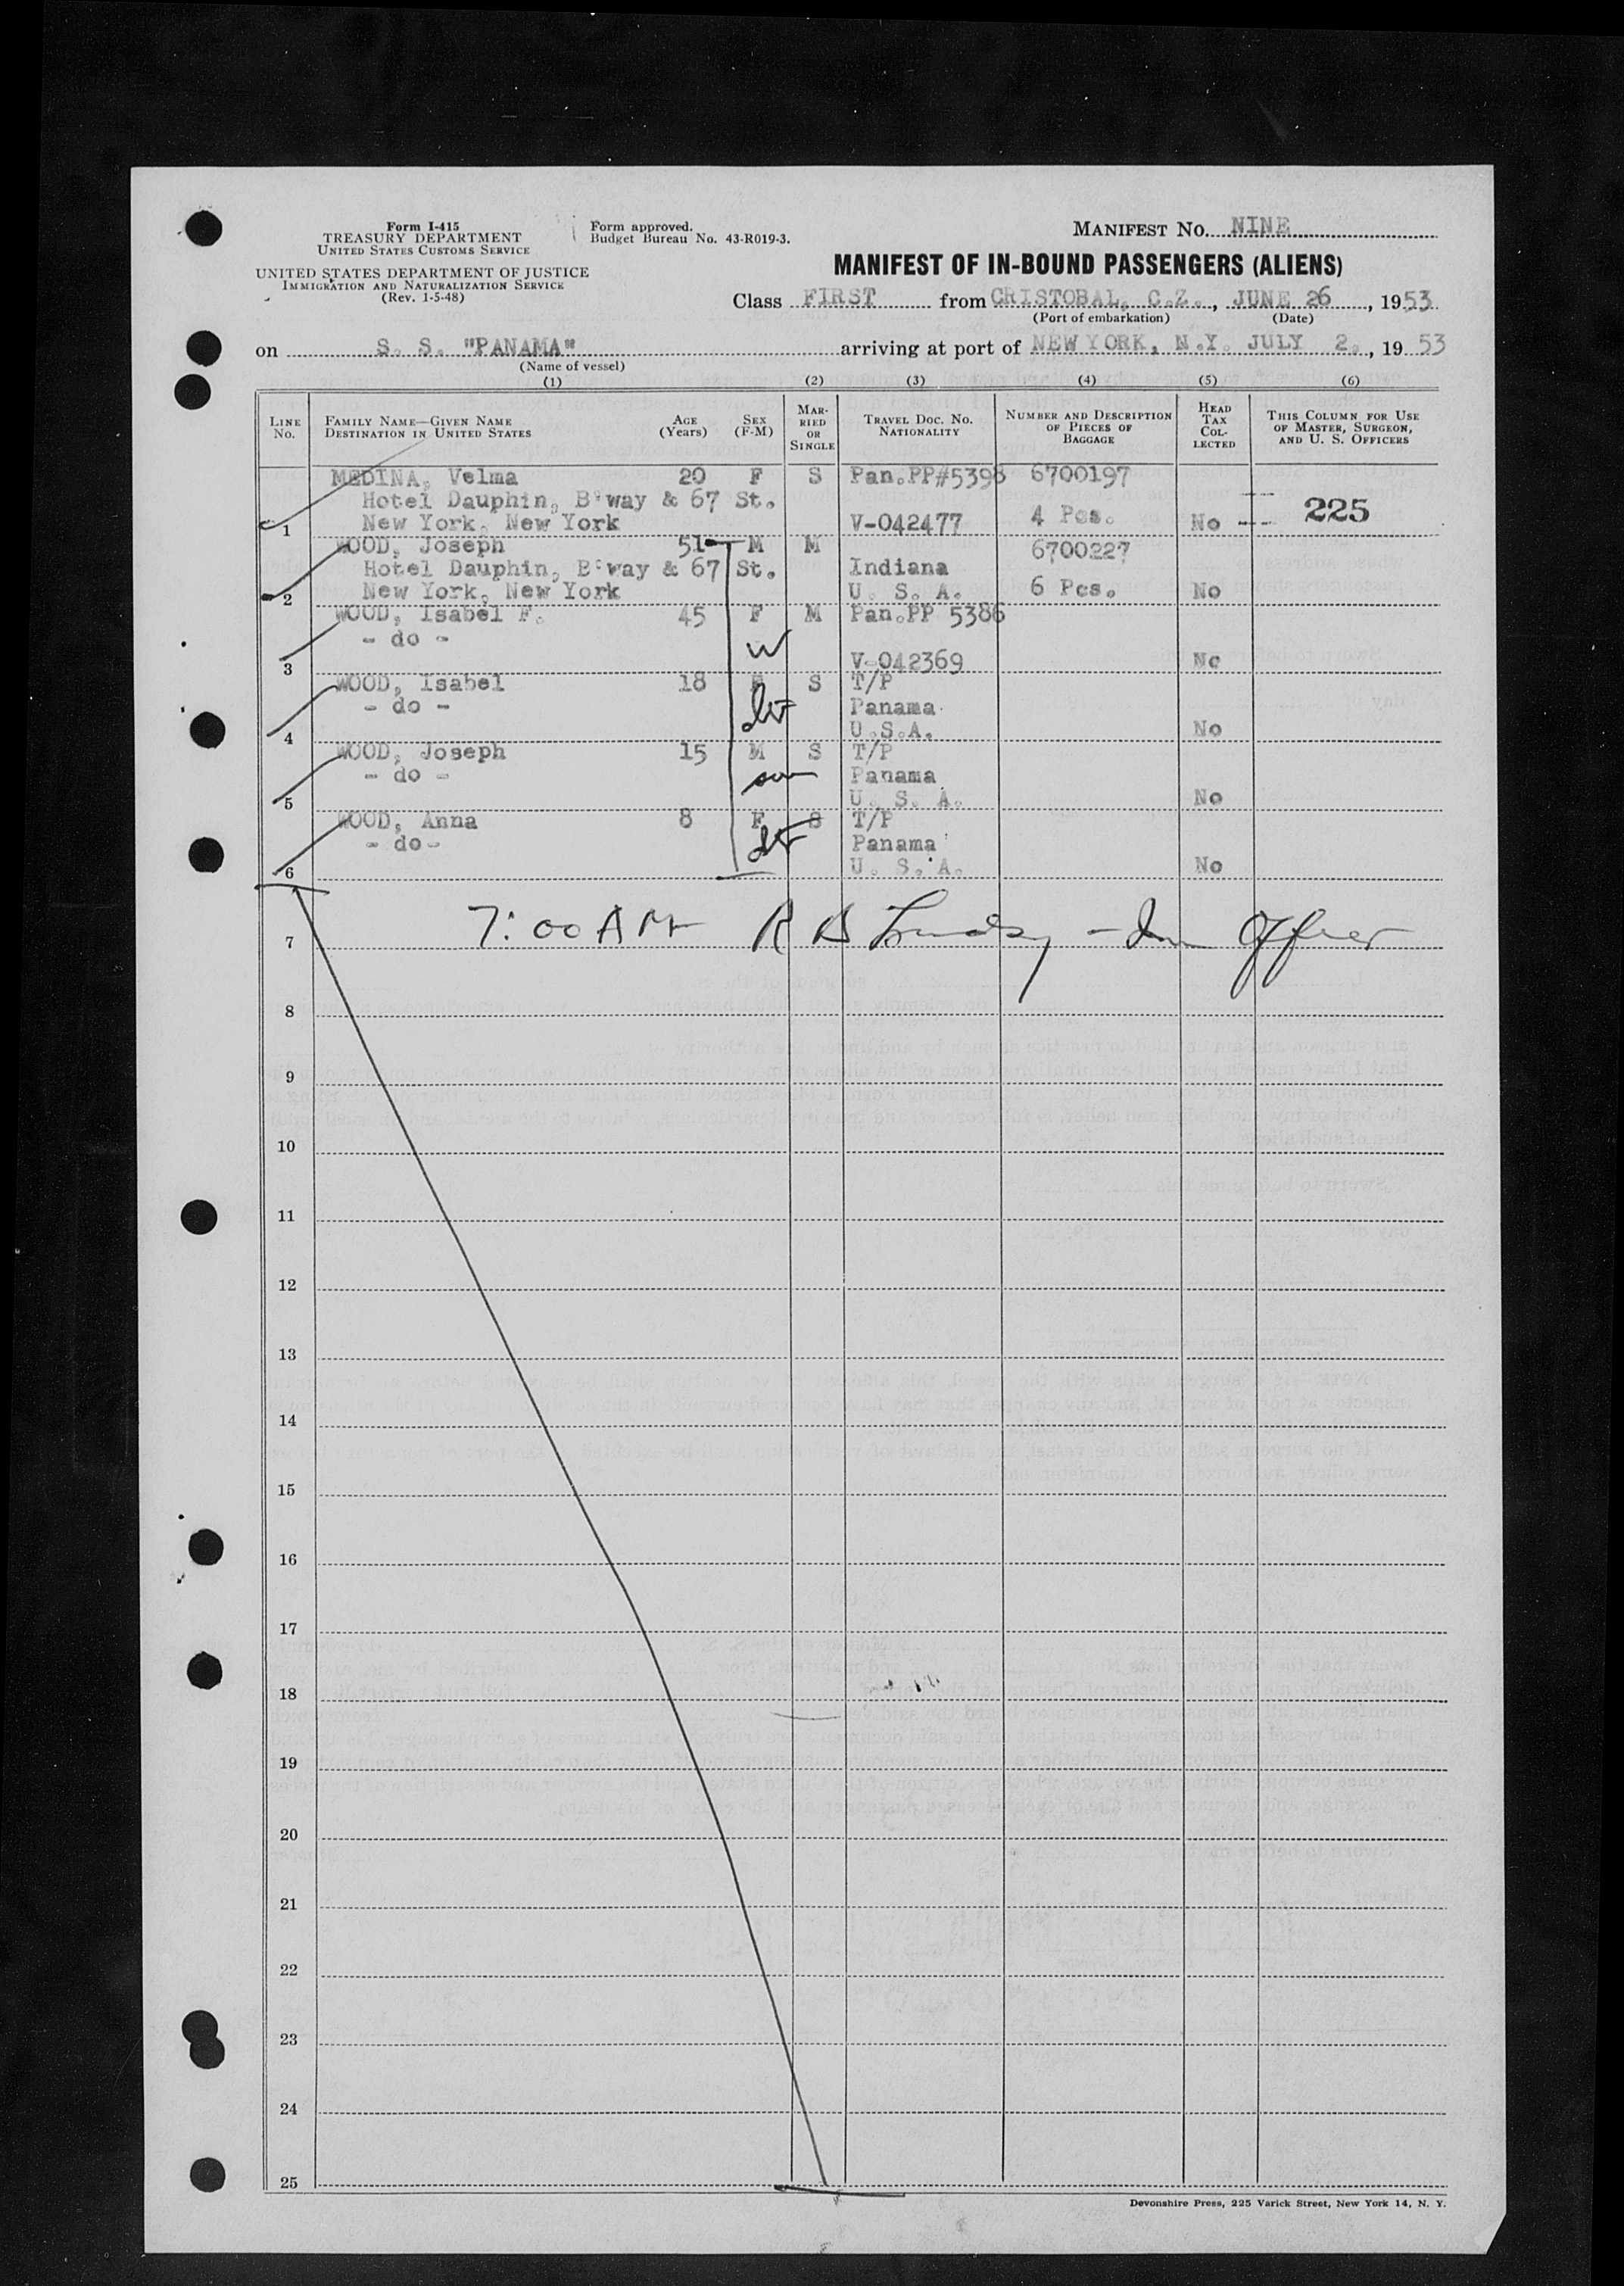 Form I-415
TREASURY DEPARTMENT
UNITED STATES CUSTOMS SERVICE
UNITED STATES DEPARTMENT OF JUSTICE
IMMIGRATION AND NATURALIZATION SERVICE
(Rev. 1-5-48)
Form approved.
Budget Bureau No. 43-R019-3.
MANIFEST No. NINE
MANIFEST OF IN-BOUND PASSENGERS (ALIENS)
Class FIRST from CRISTOBAL, C.Z., JUNE 26, 1953
(Port of embarkation) (Date)
on S. S. "PANAMA" arriving at port of NEW YORK, N.Y. JULY 2., 19 53
(Name of vessel)
(1) (2) (3) (4) (5) (6)
LINE No. FAMILY NAME—GIVEN NAME DESTINATION IN UNITED STATES AGE (Years) SEX (F-M) MARRIED OR SINGLE TRAVEL DOC. NO. NATIONALITY NUMBER AND DESCRIPTION OF PIECES OF BAGGAGE HEAD TAX COLLECTED THIS COLUMN FOR USE OF MASTER, SURGEON, AND U. S. OFFICERS
MEDINA, Velma 20 F S Pan.PP#5398 6700197
Hotel Dauphin, B'way & 67 St. 225
1 New York, New York V-042477 4 Pcs. No
WOOD, Joseph 51 M M 6700227
Hotel Dauphin, B'way & 67 St. Indiana
2 New York, New York U. S. A. 6 Pcs. No
WOOD, Isabel F. 45 F M Pan.PP 5386
- do - W
3 V-042369 No
WOOD, Isabel 18 F S T/P
- do - Panama
4 U.S.A. No
WOOD, Joseph 15 M S T/P
- do - son Panama
5 U. S. A. No
WOOD, Anna 8 F S T/P
- do - Panama
6 U. S. A. No
7 7:00 AM R B Lindsay - Im Officer
8
9
10
11
12
13
14
15
16
17
18
19
20
21
22
23
24
25
Devonshire Press, 225 Varick Street, New York 14, N. Y.